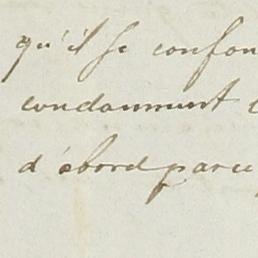 qu'il se confon
condamment
d'abord parce